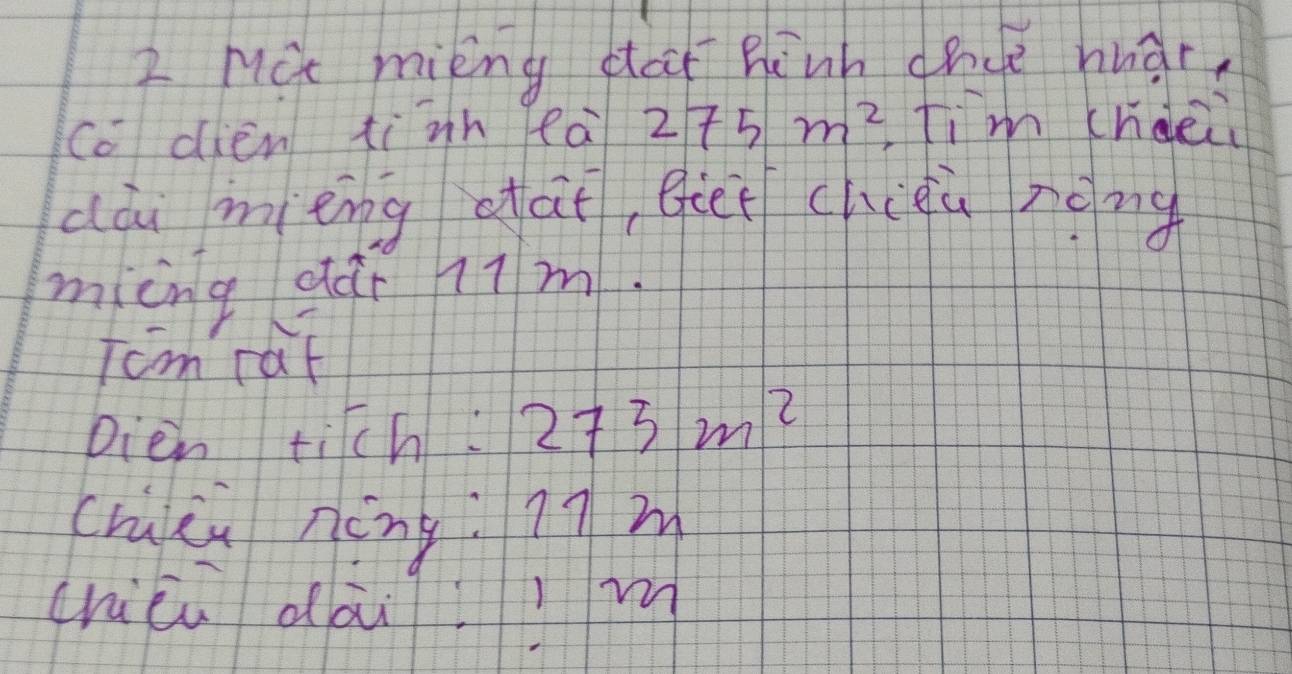 2 Một miếng đất hình chữ nhật,
có diện tính là 275 m². Tìm chiều
dài miếng đất, biết chiều rộng
miếng đất 11 m.
Tóm tắt
Diện tích : 275 m²
Chiều rộng : 11 m
Chiều dài : ? m